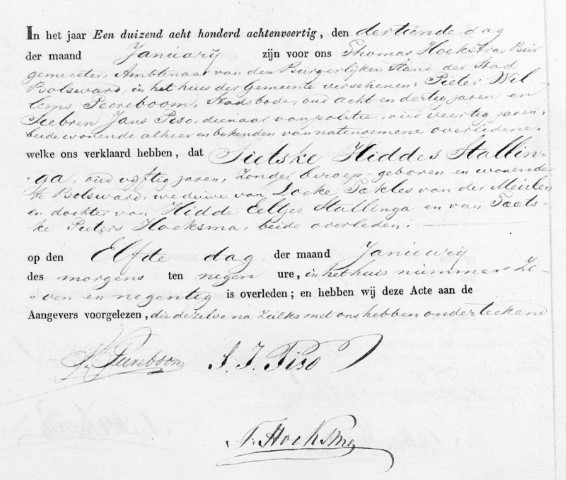 In het jaar Een duizend acht honderd achtenveertig, den dertiende dag
der maand Januarij zijn voor ons Thomas Hoekstra, Bur
gemeester, Ambtenaar van den Burgerlijken Stand der Stad
Bolsward, in het huis der Gemeente verschenen Pieter Wil
lems Peereboom, Stadsbode, oud acht en dertig jaren en
Siebren Jans Piso, dienaar van politie, oud veertig jaren,
beide wonende alhier en bekenden van natenoemene overledene
welke ons verklaard hebben, dat Sietske Hiddes Stallin-
ga, oud vijftig jaren, zonder beroep, geboren en wonende
te Bolsward, weduwe van Loeke Takles van der Meulen
en dochter van Hidde Eeltjes Stallinga en van Saets-
ke Pieters Hoeksma, beide overleden.
op den Elfde dag der maand Januarij
des morgens ten negen ure, in het huis nummer ze-
ven en negentig is overleden; en hebben wij deze Acte aan de
Aangevers voorgelezen, die dezelve na zulks met ons hebben onderteekend
Peereboom S. J. Piso
T. Hoekstra